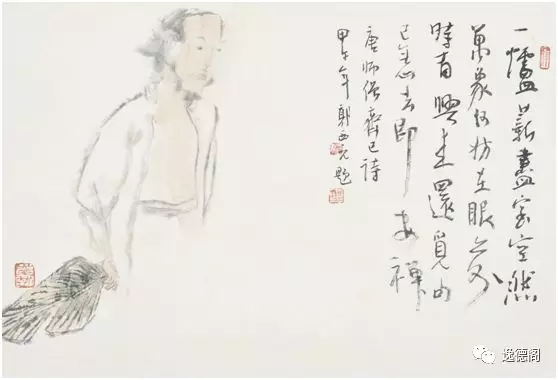 一爐薪盡室空然
萬象何妨在眼前
時有興來還覓句
已無心去即安禪
唐師僧齊己詩
甲午年郭西元題
逸德阁